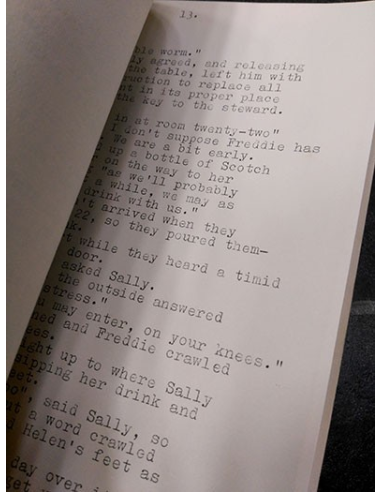 13.
worm."
agreed, and releasing
the table, left him with
to replace all
in its proper place
the key to the steward.
in at room twenty-two"
I don't suppose Freddie has
We are a bit early.
up a bottle of Scotch
on the way to her
"as we'll probably
a while, we may as
drink with us."
arrived when they
22, so they poured them-
while they heard a timid
door.
asked Sally.
the outside answered
may enter, on your knees."
and Freddie crawled
up to where Sally
sipping her drink and
said Sally, so
a word crawled
Helen's feet as
day over